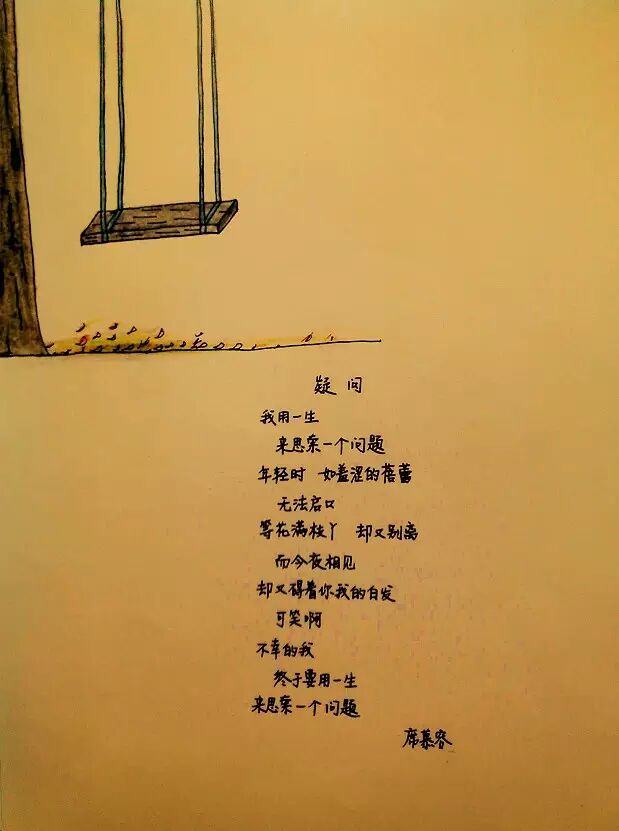 疑 问
我用一生
来思索一个问题
年轻时 如羞涩的蓓蕾
无法启口
等花满枝丫 却又别离
而今夜相见
却又碍着你我的白发
可笑啊
不幸的我
终于要用一生
来思索一个问题
席慕容